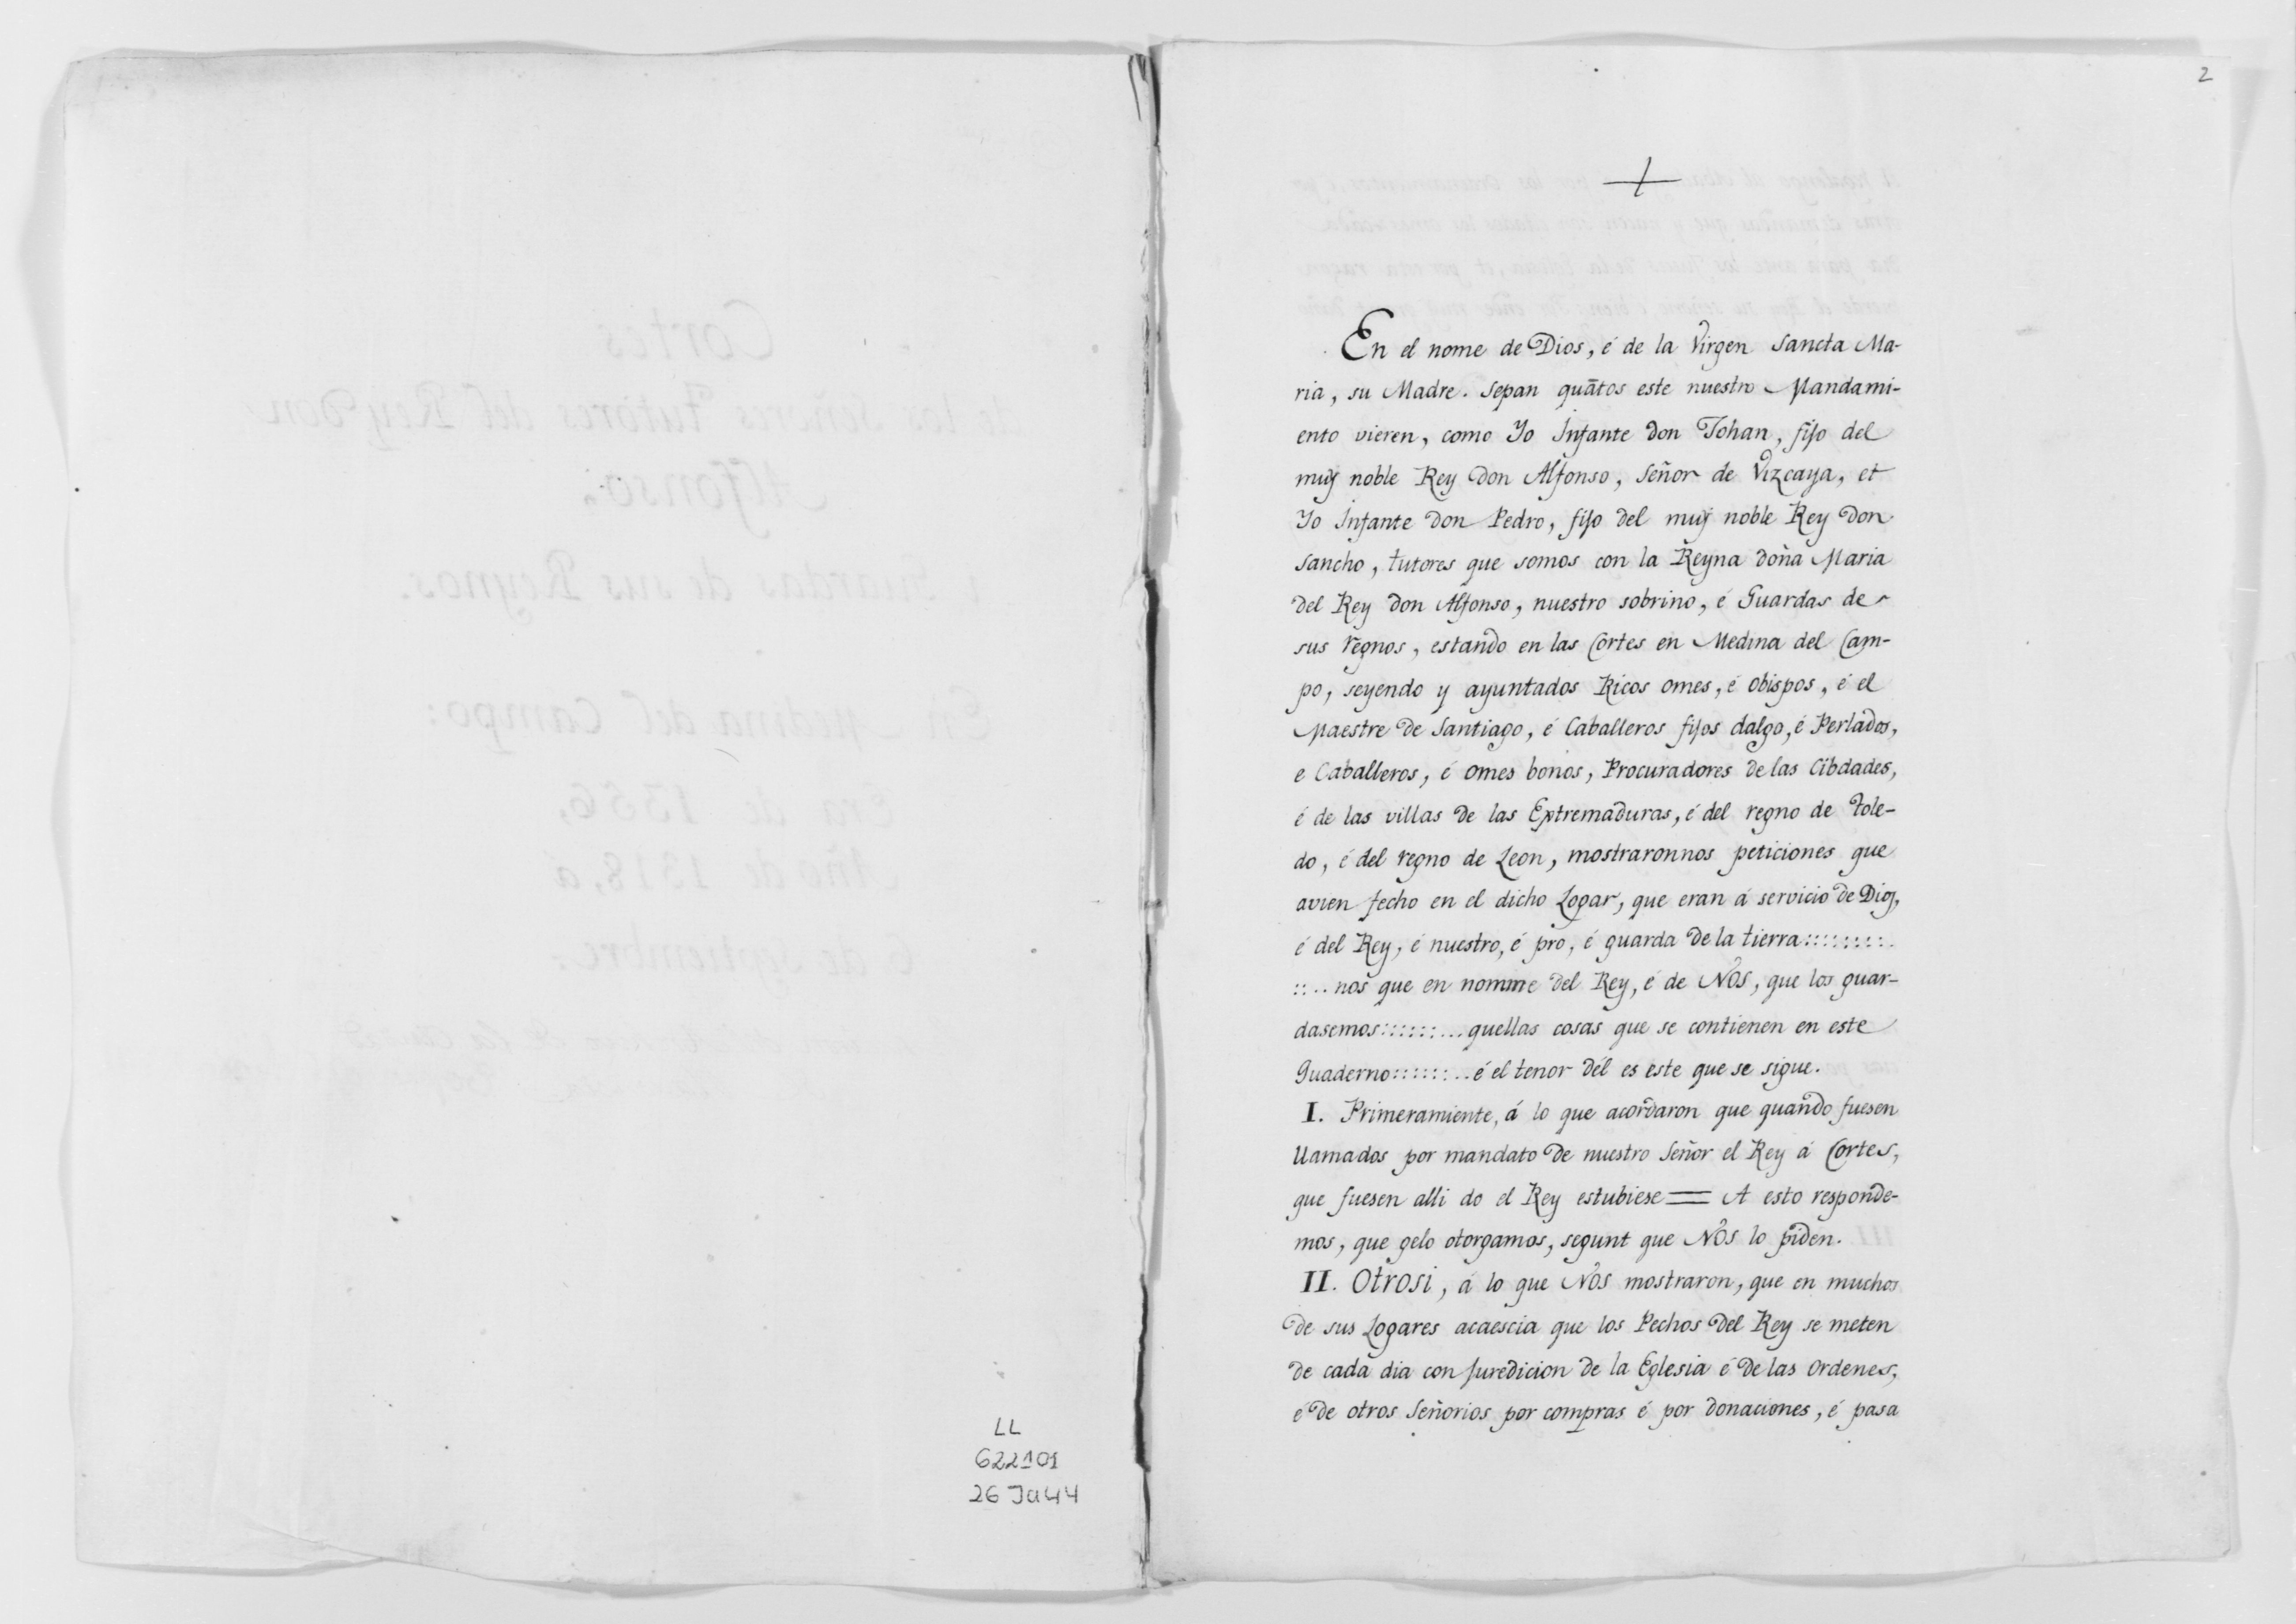 LL
622101
26 Ja44
2
En el nome de Dios, é de la Virgen Sancta Ma-
ria, su Madre. Sepan quātos este nuestro Mandami-
ento vieren, como Yo Infante don Johan, fijo del
muy noble Rey don Alfonso, Señor de Vizcaya, et
Yo Infante don Pedro, fijo del muy noble Rey don
Sancho, tutores que somos con la Reyna doña Maria
del Rey don Alfonso, nuestro sobrino, é Guardas de
sus regnos, estando en las Cortes en Medina del Cam-
po, seyendo y ayuntados Ricos omes, é obispos, é el
Maestre de Santiago, é Caballeros fijos dalgo, é Perlados,
e Caballeros, é omes bonos, Procuradores de las Cibdades,
é de las villas de las Extremaduras, é del regno de Tole-
do, é del regno de Leon, mostraronnos peticiones que
avien fecho en el dicho Logar, que eran á servicio de Dios,
é del Rey, é nuestro, é pro, é guarda de la tierra::::::::.
::..nos que en nomine del Rey, é de Nos, que los guar-
dasemos::::::...quellas cosas que se contienen en este
Quaderno::::::..é el tenor dél es este que se sigue.
I. Primeramiente, á lo que acordaron que quando fuesen
llamados por mandato de nuestro Señor el Rey á Cortes,
que fuesen alli do el Rey estubiese = A esto responde-
mos, que gelo otorgamos, segunt que Nos lo piden.
II. Otrosi, á lo que Nos mostraron, que en muchos
de sus Logares acaescia que los Pechos del Rey se meten
de cada dia con juredicion de la Eglesia é de las ordenes,
é de otros Señorios por compras é por donaciones, é pasa